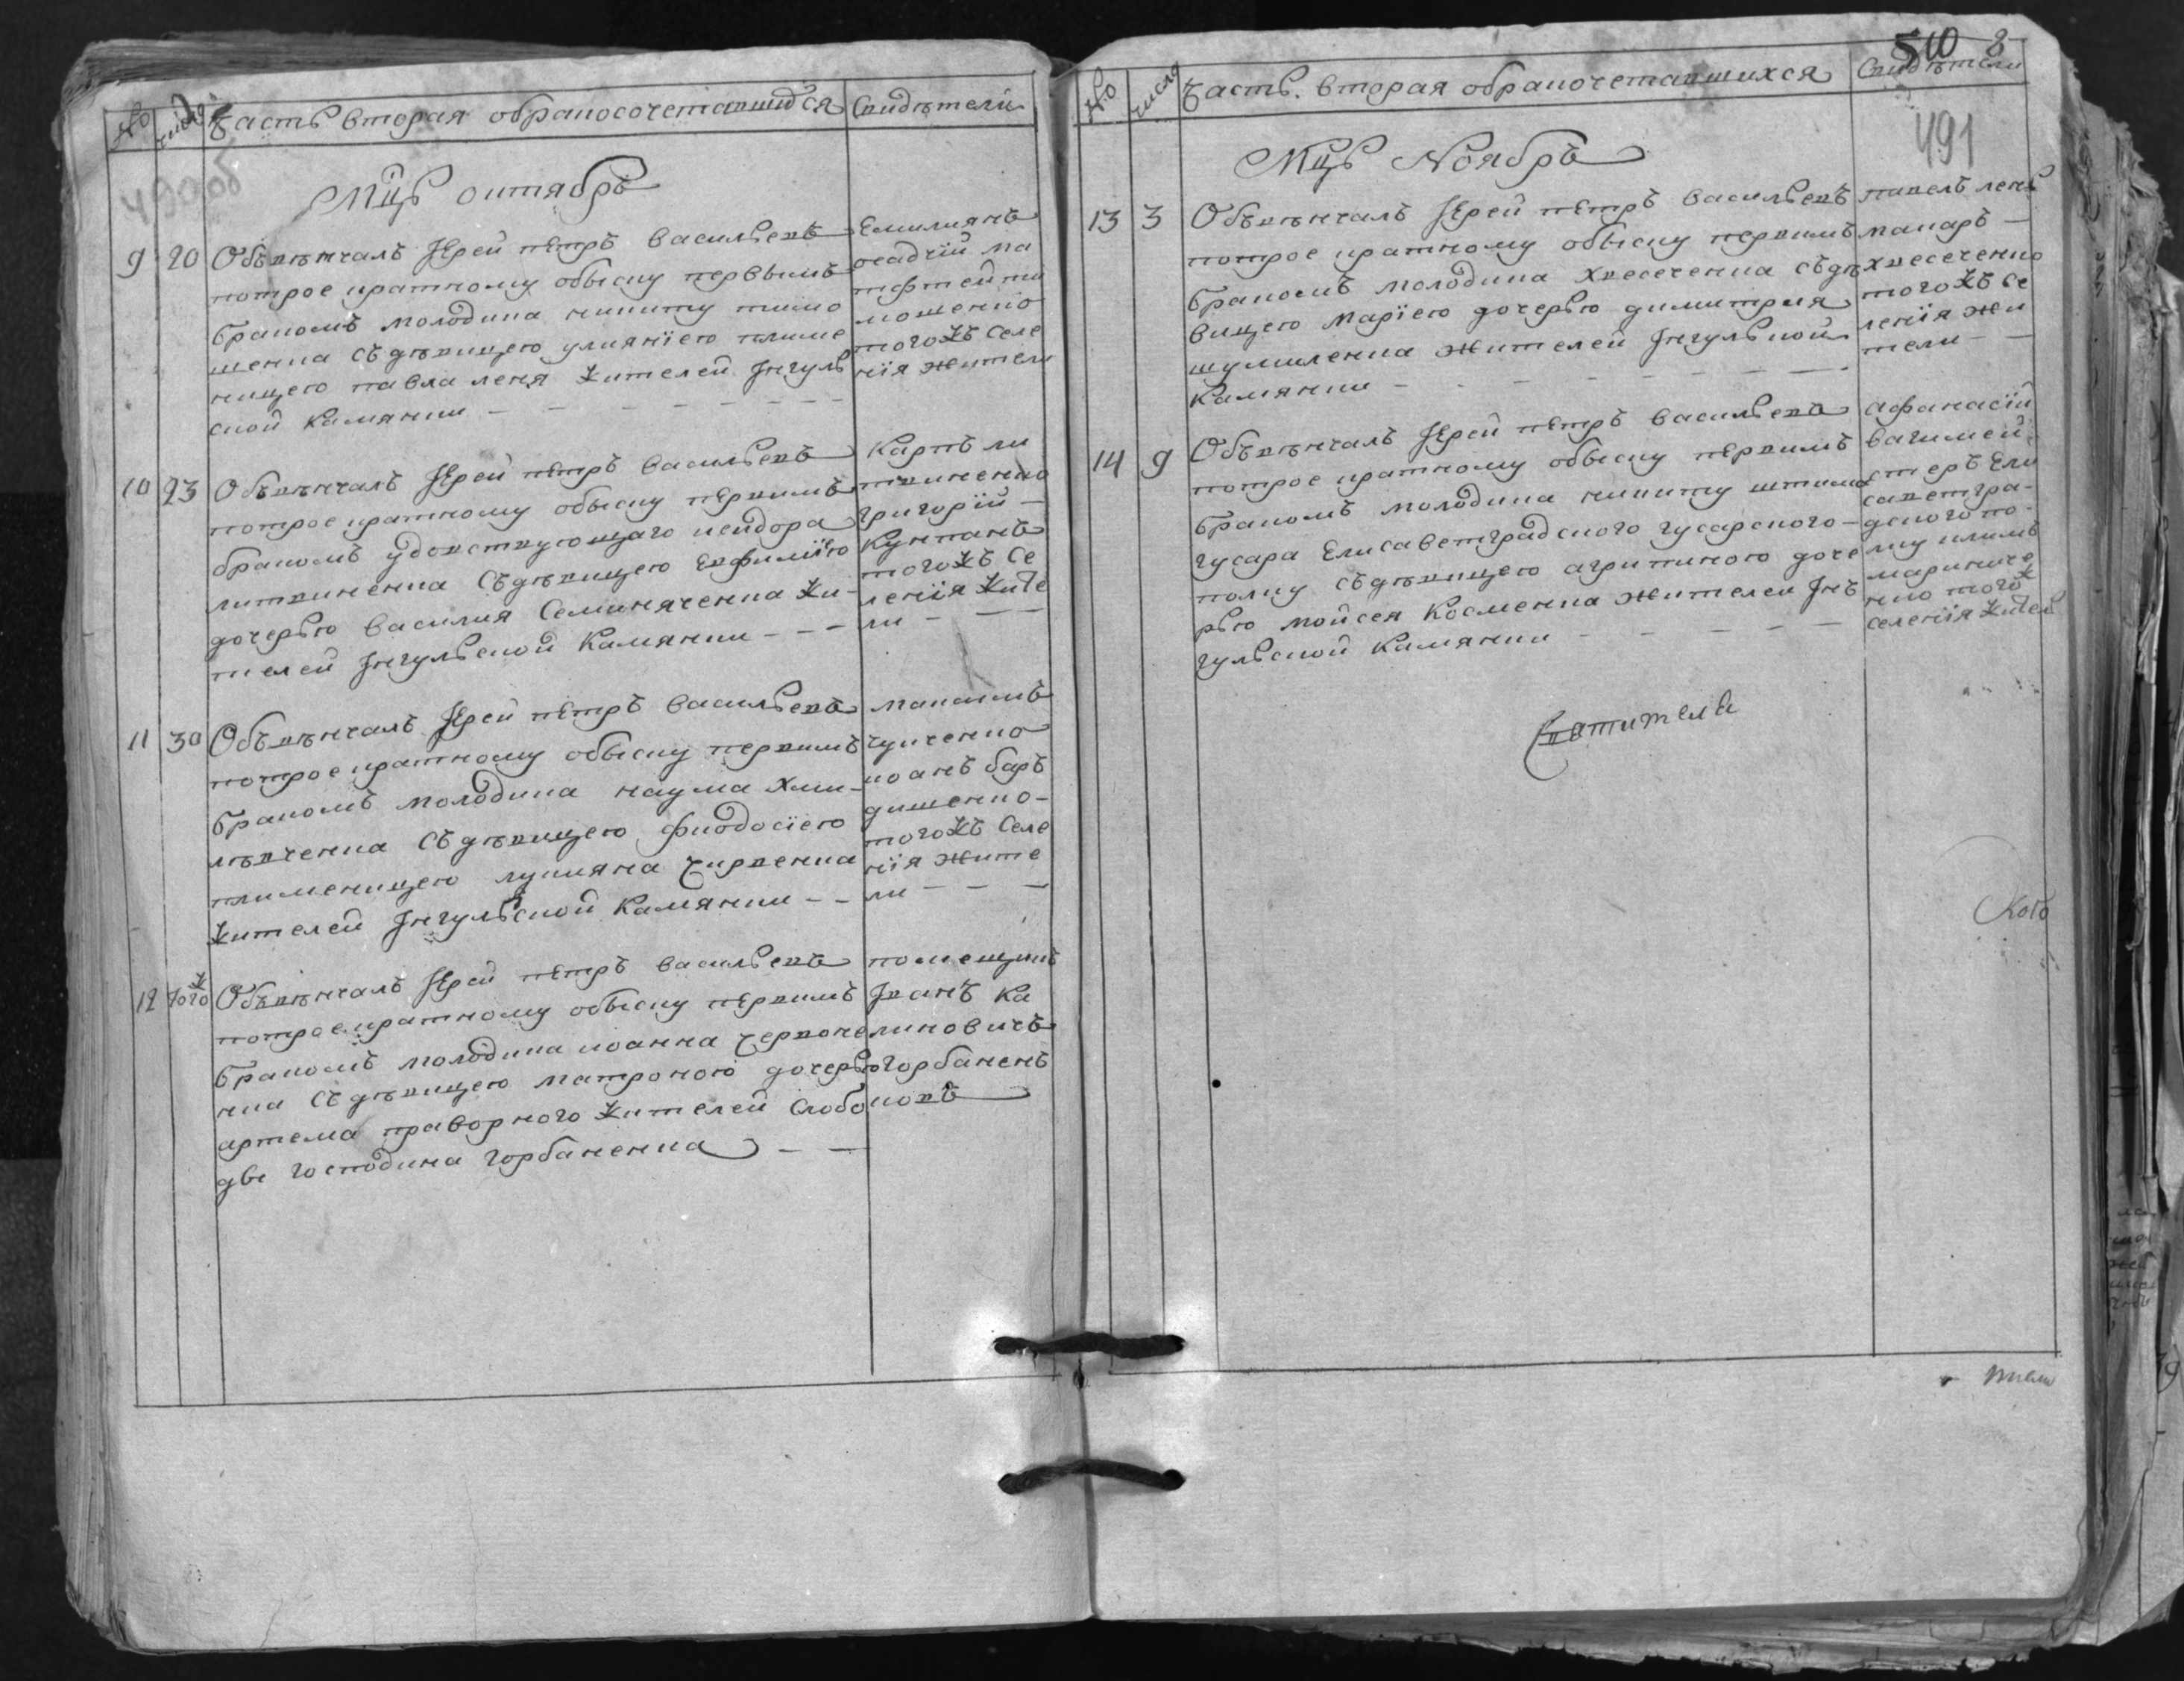 № числа Часть вторая о бракосочетавшихся Свидѣтели
490об
Мцъ октябрь
9 20 Объвѣнчалъ Іерей петръ васильевъ
потроекратному обыску первымъ
бракомъ молодика никиту тимо
шенка съ дѣвицею улияніею племе
ницею павла леня жителей Ингуль
ской Камянки
Емилиянъ
осадчій ма
тфей ти
мошенко
тогожъ селе
нія жители
10 23 Объвѣнчалъ Іерей петръ васильевъ
потроекратному обыску первимъ
бракомъ удовствующаго исидора
литвиненка съ дѣвицею Евфимїею
дочерью василия Семиняченка жи-
телей Ингульской Камянки
Карпъ ли
твиненко
григорій
Куппанъ
тогожъ се
ленія жите
ли
11 30 Объвѣнчалъ Іерей петръ васильевъ
потроекратному обыску первимъ
бракомъ молодика наума хми-
лѣвченка съ дѣвицею фиодосіею
племеницею лукияна Чирвенка
жителей Ингульской Камянки
максимъ
гупченко
иоанъ барь
дишенко
тогожъ селе
нія жите
ли
12 тогож Объвѣнчалъ Іерей петръ васильевъ
потроекратному обыску первимъ
бракомъ молодика иоанна червоне
нка съ дѣвицею матроною дочерью
артема праворного жителей слобо
две господина горбаненка
помещикъ
Іванъ Ка
линовичъ
горбанень
ковъ
№ числа Часть вторая о бракочетавшихся Свидѣтели
510 8
491
Мцъ Ноябрь
13 3 Объвѣнчалъ Іерей петръ васильевъ
потроекратному обыску первимъ
бракомъ молодика хвесеченка съ дѣ
вицею маріею дочерью димитрия
шумиленка жителей Ингульской
Камянки
павелъ лень
макаръ
хвесеченко
тогожъ се
ленія жи
тели
14 9 Объвѣнчалъ Іерей петръ васильевъ
потроекратному обыску первимъ
бракомъ молодика никиту
гусара Елисаветградского гусарского
полку съ дѣвицею агрипиною доче
рью мойсея Косменка жителей Ін
гульской Камянки
афанасій
вагимей
стеръ Ели
саветгра-
дского по-
лку климъ
мариниче
нко тогож
селенія жители